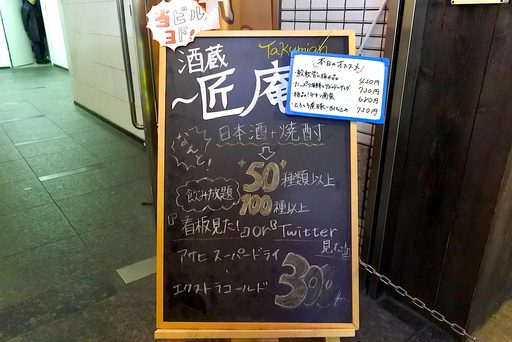 当ビル
3F!
Takumian
酒蔵
~匠庵
本日のオススメ
450円
730円
680円
730円
なんと!
日本酒+焼酎
50種類以上
飲み放題
100種以上
『看板見た!』or『Twitter
見た』
アサヒ スーパードライ
エクストラコールド
300